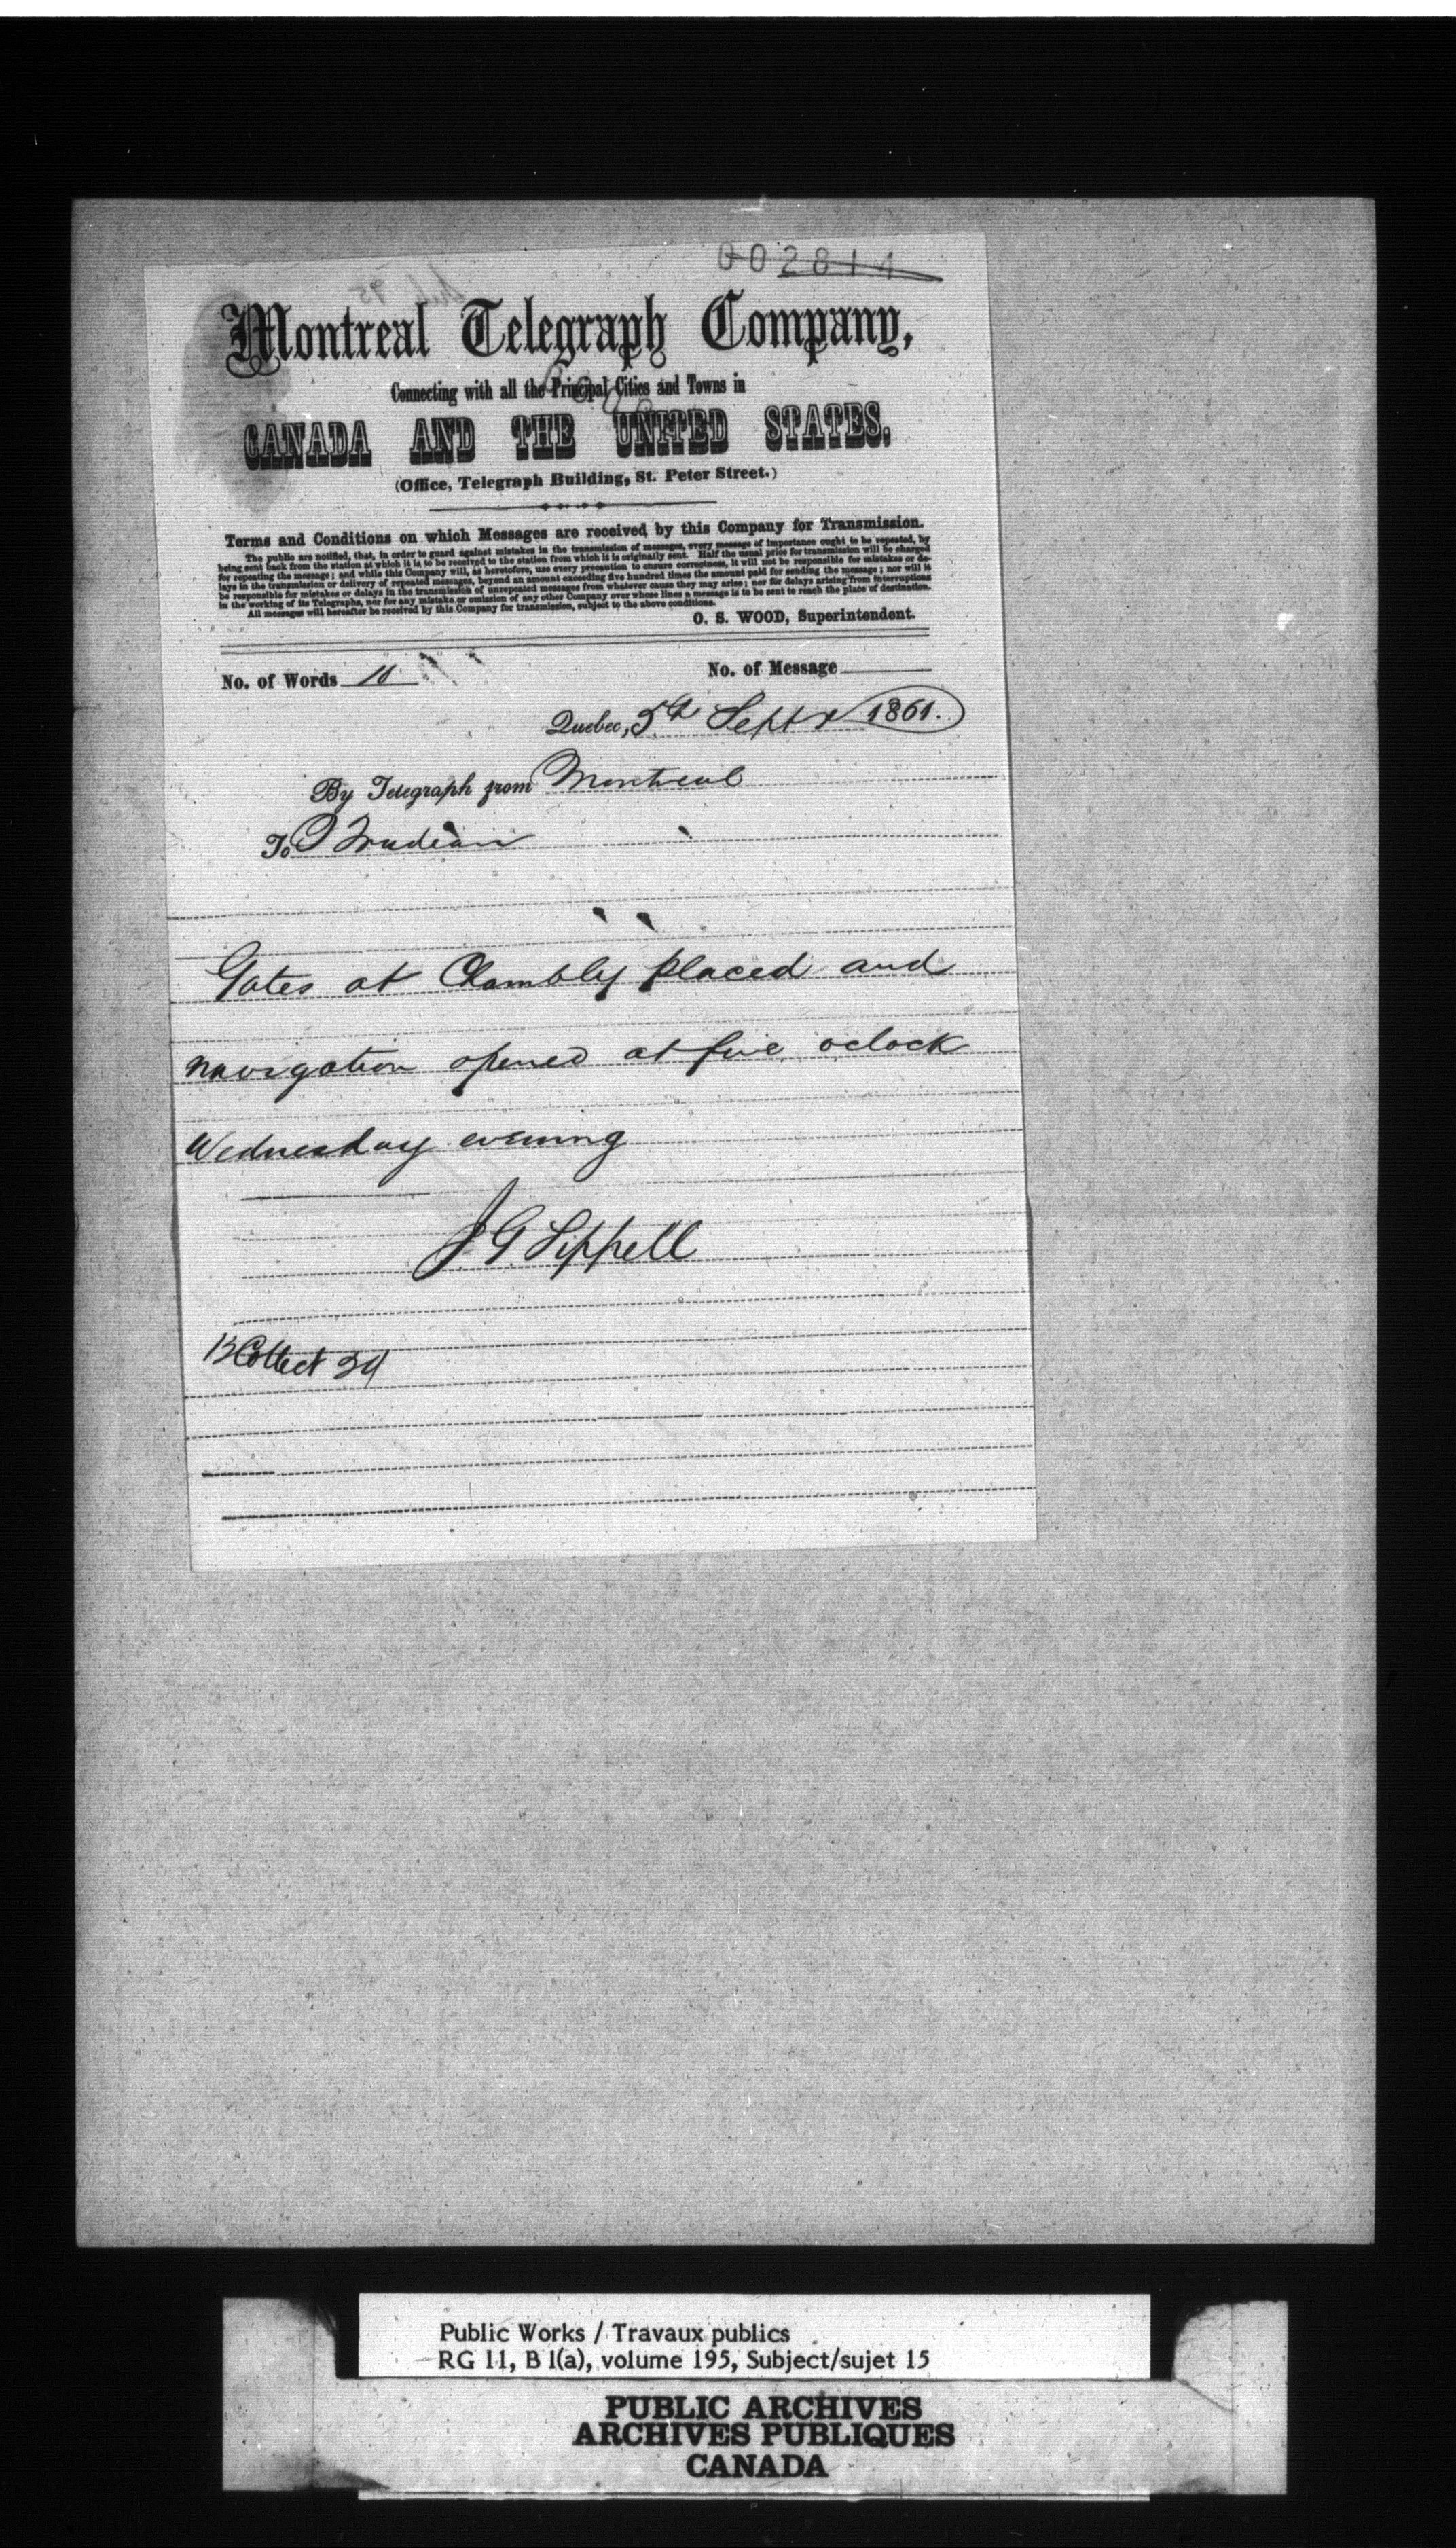 002814
Montreal Telegraph Company,
Connecting with all the Principal Cities and Towns in
CANADA AND THE UNITED STATES.
(Office, Telegraph Building, St. Peter Street.)
Terms and Conditions on which Messages are received by this Company for Transmission.
The public are notified, that, in order to guard against mistakes in the transmission of messages, every message of importance ought to be repeated, by
being sent back from the station at which it is to be received to the station from which it is originally sent. Half the usual price for transmission will be charged
for repeating the message; and while this Company will, as heretofore, use every precaution to ensure correctness, it will not be responsible for mistakes or de-
lays in the transmission or delivery of repeated messages, beyond an amount exceeding five hundred times the amount paid for sending the message; nor will it
be responsible for mistakes or delays in the transmission of unrepeated messages from whatever cause they may arise; nor for delays arising from interruptions
in the working of its Telegraphs, nor for any mistake or omission of any other Company over whose lines a message is to be sent to reach the place of destination.
All messages will hereafter be received by this Company for transmission, subject to the above conditions.
O. S. WOOD, Superintendent.
No. of Words 10 No. of Message
Quebec, 5th Septr 1861.
By Telegraph from Montreal
To Trudeau
Gates at Chambly placed and
navigation opened at five oclock
Wednesday evening
J. G. Sippell
Collect
Public Works / Travaux publics
RG 11, B 1(a), volume 195, Subject/sujet 15
PUBLIC ARCHIVES
ARCHIVES PUBLIQUES
CANADA